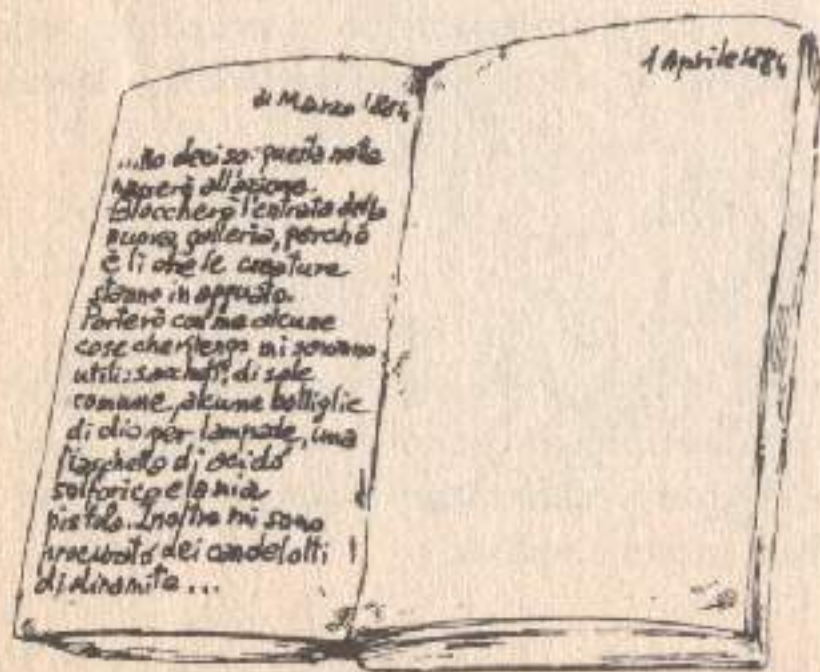 31 Marzo 1884
...Ho deciso: questa notte
passerò all'azione.
Bloccherò l'entrata della
nuova galleria, perchè
è lì che le creature
stanno in agguato.
Porterò con me alcune
cose che ritengo mi saranno
utili: sacchetti di sale
comune, alcune bottiglie
di olio per lampade, una
fiaschetta di acido
solforico e la mia
pistola. Inoltre mi sono
procurato dei candelotti
di dinamite...
1 Aprile 1884